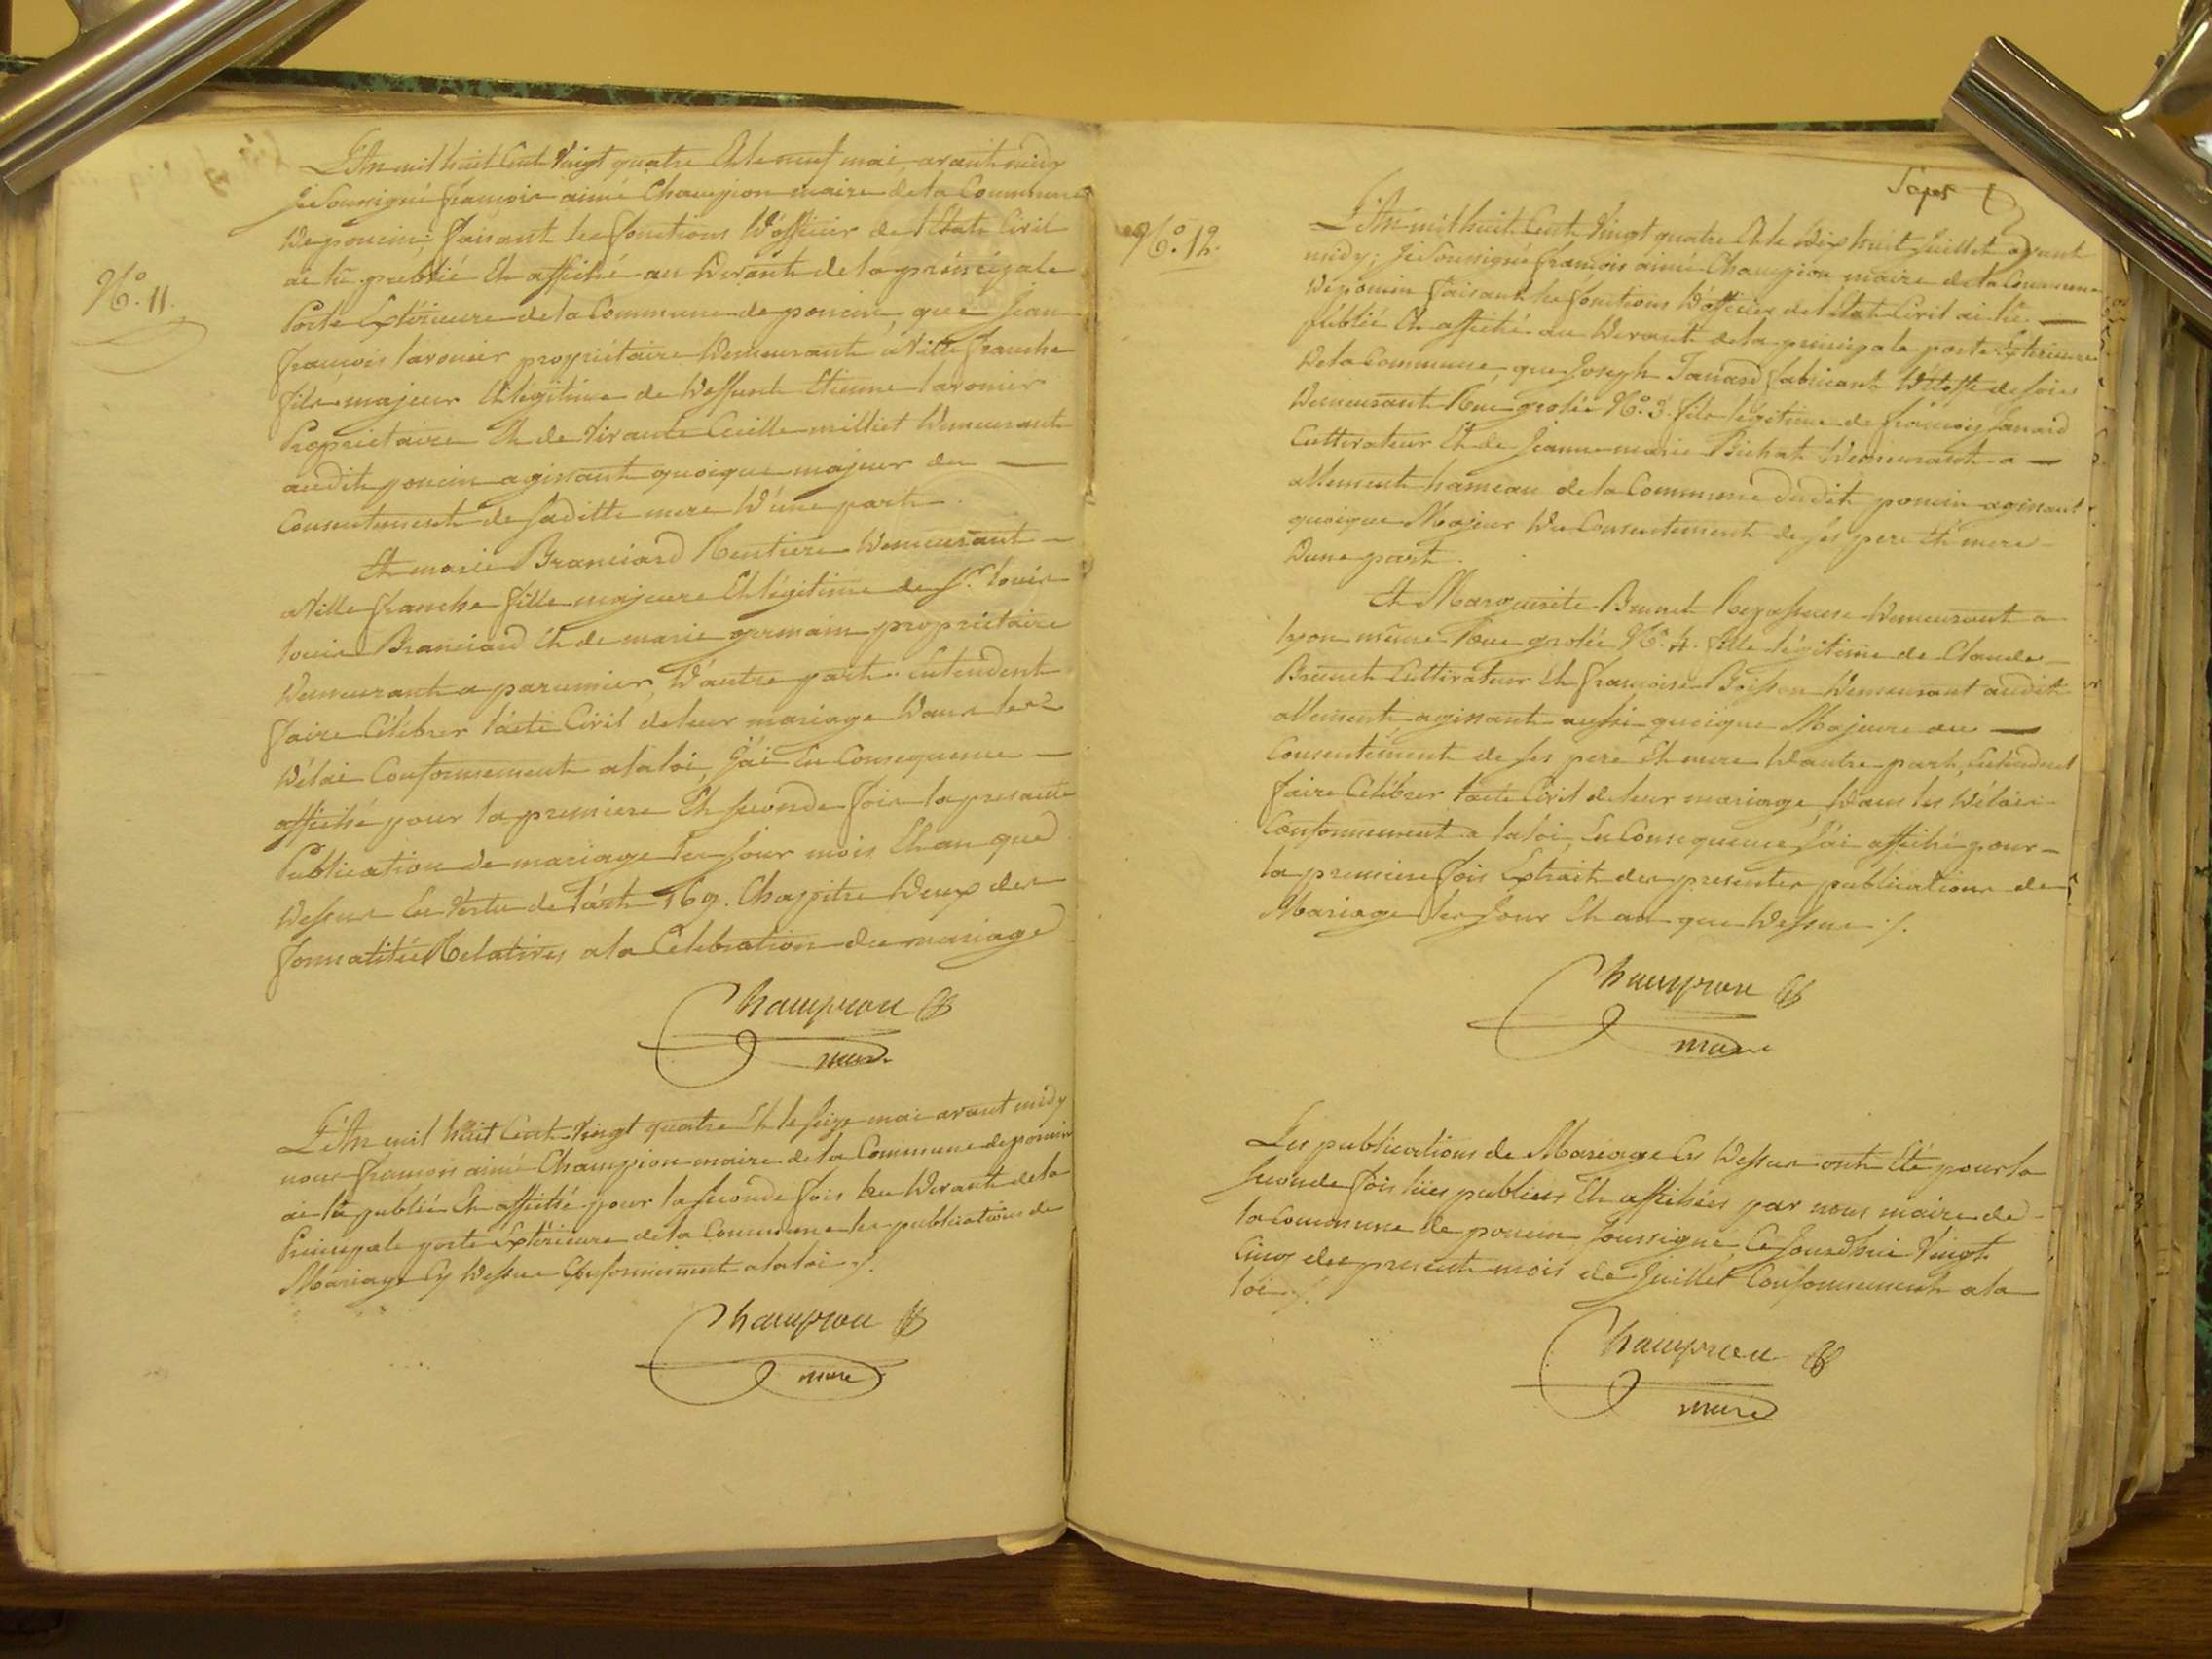 N.º 11.
L'An mil huit Cent Vingt quatre Et le neuf mai, avant midy
Je Soussigné francois aimé Champion maire de la Commune
De poncin; faisant les fonctions D'officier de l'Etat Civil
ai lu publié Et affiché au Devant de la principale
Porte Extérieure de la Commune de poncin que Jean
francois lavonier propriétaire Demeurant a Ville franche
fils majeur Et légitime de Deffunt Etienne lavonier
Propriétaire Et de Vivante milliet Demeurant
audit poncin agissant quoique majeur du —
Consentement de sa ditte mere D'une part.
Et marie Branciard Rentiere Demeurant —
a Ville franche fille majeure Et légitime de Sr. louis
louis Branciard Et de marie germain propriétaire
Demeurant a D'autre part. Entendent
faire Célébrer l'acte Civil de leur mariage Dans les
Délai Conformement a la loi, J'ai En Consequence —
affiché pour la premiere Et seconde fois la presante
Publication de mariage les Jour mois Et an que
Dessus En Vertu de l'art 169. Chapitre Deux des
formalités Relatives a la Célébration du mariage
Champion
maire
L'An mil huit Cent Vingt quatre Et le seize mai avant midy
nous francois aimé Champion maire de la Commune de poncin
ai lu publié Et affiché pour la seconde fois au Devant de la
Principale porte Extérieure de la Commune les publications de
Mariage Cy Dessus Conformement a la loi ./.
Champion
maire
N.º 12.
L'An mil huit Cent Vingt quatre Et le Dix huit Juillet avant
midy; Je Soussigné francois aimé Champion maire de la Commune
De poncin faisant les fonctions D'officier de l'Etat Civil ai lu —
publié Et affiché au Devant de la principale porte Extérieure
De la Commune, que Joseph Janard fabricant D'étoffe de soie
Demeurant Rue grolée N.º 3. fils légitime de francois Janard
Cultivateur Et de Jeanne marie Bichat Demeurant a —
allement hameau de la Commune dudit poncin agissant
quoique Majeur Du Consentement de ses pere Et mere
D'une part.
Et Marguerite Brunet Repasseuse Demeurant a
lyon même Rue grolée N.º 4. fille légitime de Claude
Brunet Cultivateur Et francoise Boisson Demeurant audit
allement agissant aussi quoique Majeure du —
Consentement de ses pere Et mere D'autre part, Entendent
faire Célébrer l'acte Civil de leur mariage, Dans les Délais
Conformement a la loi, En Consequence J'ai affiché pour —
la premiere fois Extrait des presentes publications de
Mariage les Jour Et an que Dessus ./.
Champion
maire
Les publications de Mariage Ci Dessus ont Eté pour la
seconde fois lües publiées Et affichées par nous maire de —
la commune de poncin soussigné, Ce Jourd'hui Vingt
Cinq du present mois de Juillet Conformement a la
loi ./.
Champion
maire